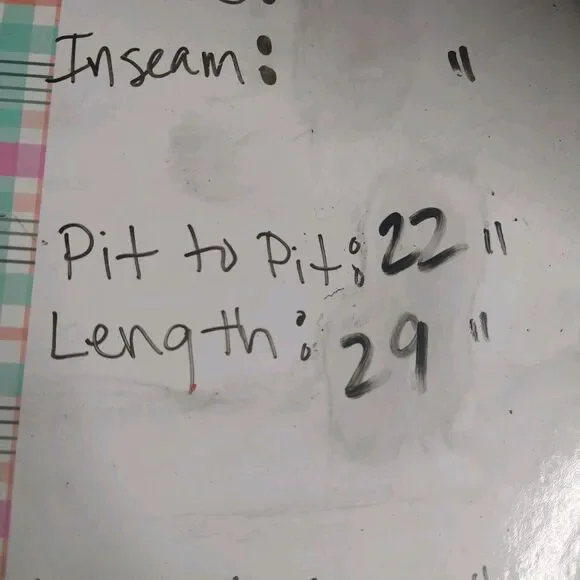 Inseam: "
Pit to Pit: 22 "
Length: 29 "